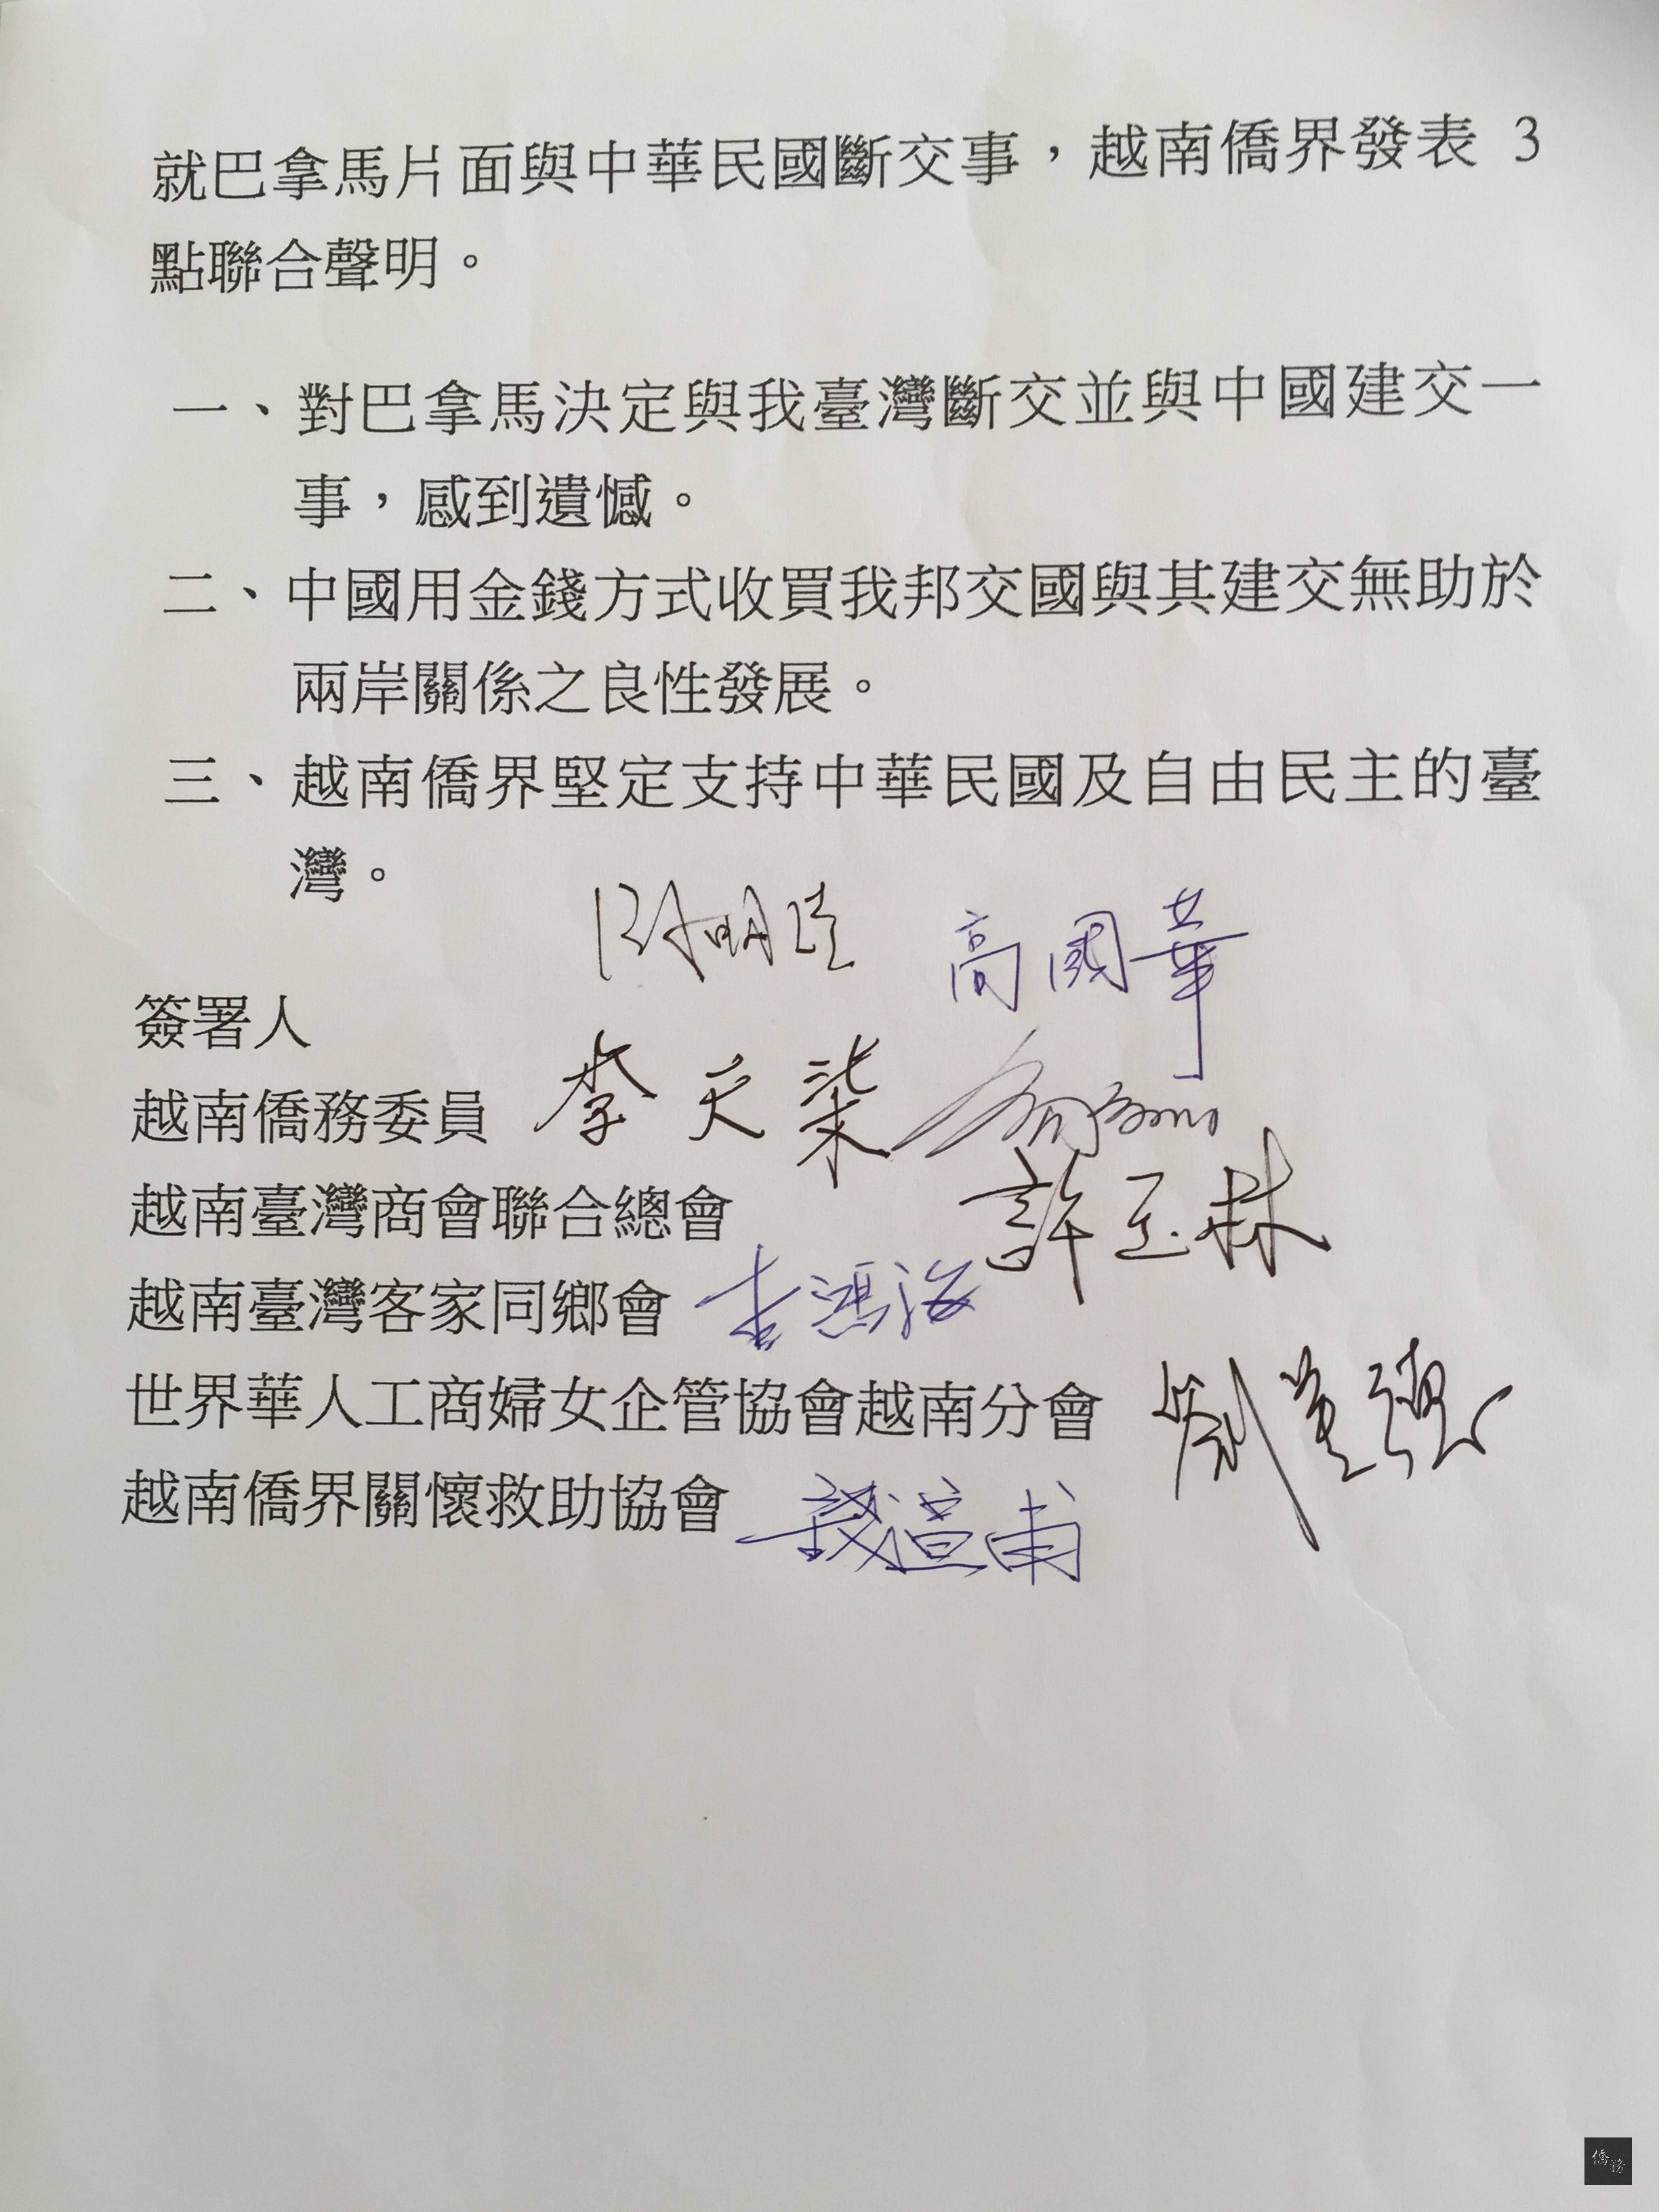 就巴拿馬片面與中華民國斷交事，越南僑界發表 3
點聯合聲明。
一、對巴拿馬決定與我臺灣斷交並與中國建交一
事，感到遺憾。
二、中國用金錢方式收買我邦交國與其建交無助於
兩岸關係之良性發展。
三、越南僑界堅定支持中華民國及自由民主的臺
灣。
高國華
簽署人
越南僑務委員 李天柒
越南臺灣商會聯合總會 許玉林
越南臺灣客家同鄉會
世界華人工商婦女企管協會越南分會
越南僑界關懷救助協會
僑務